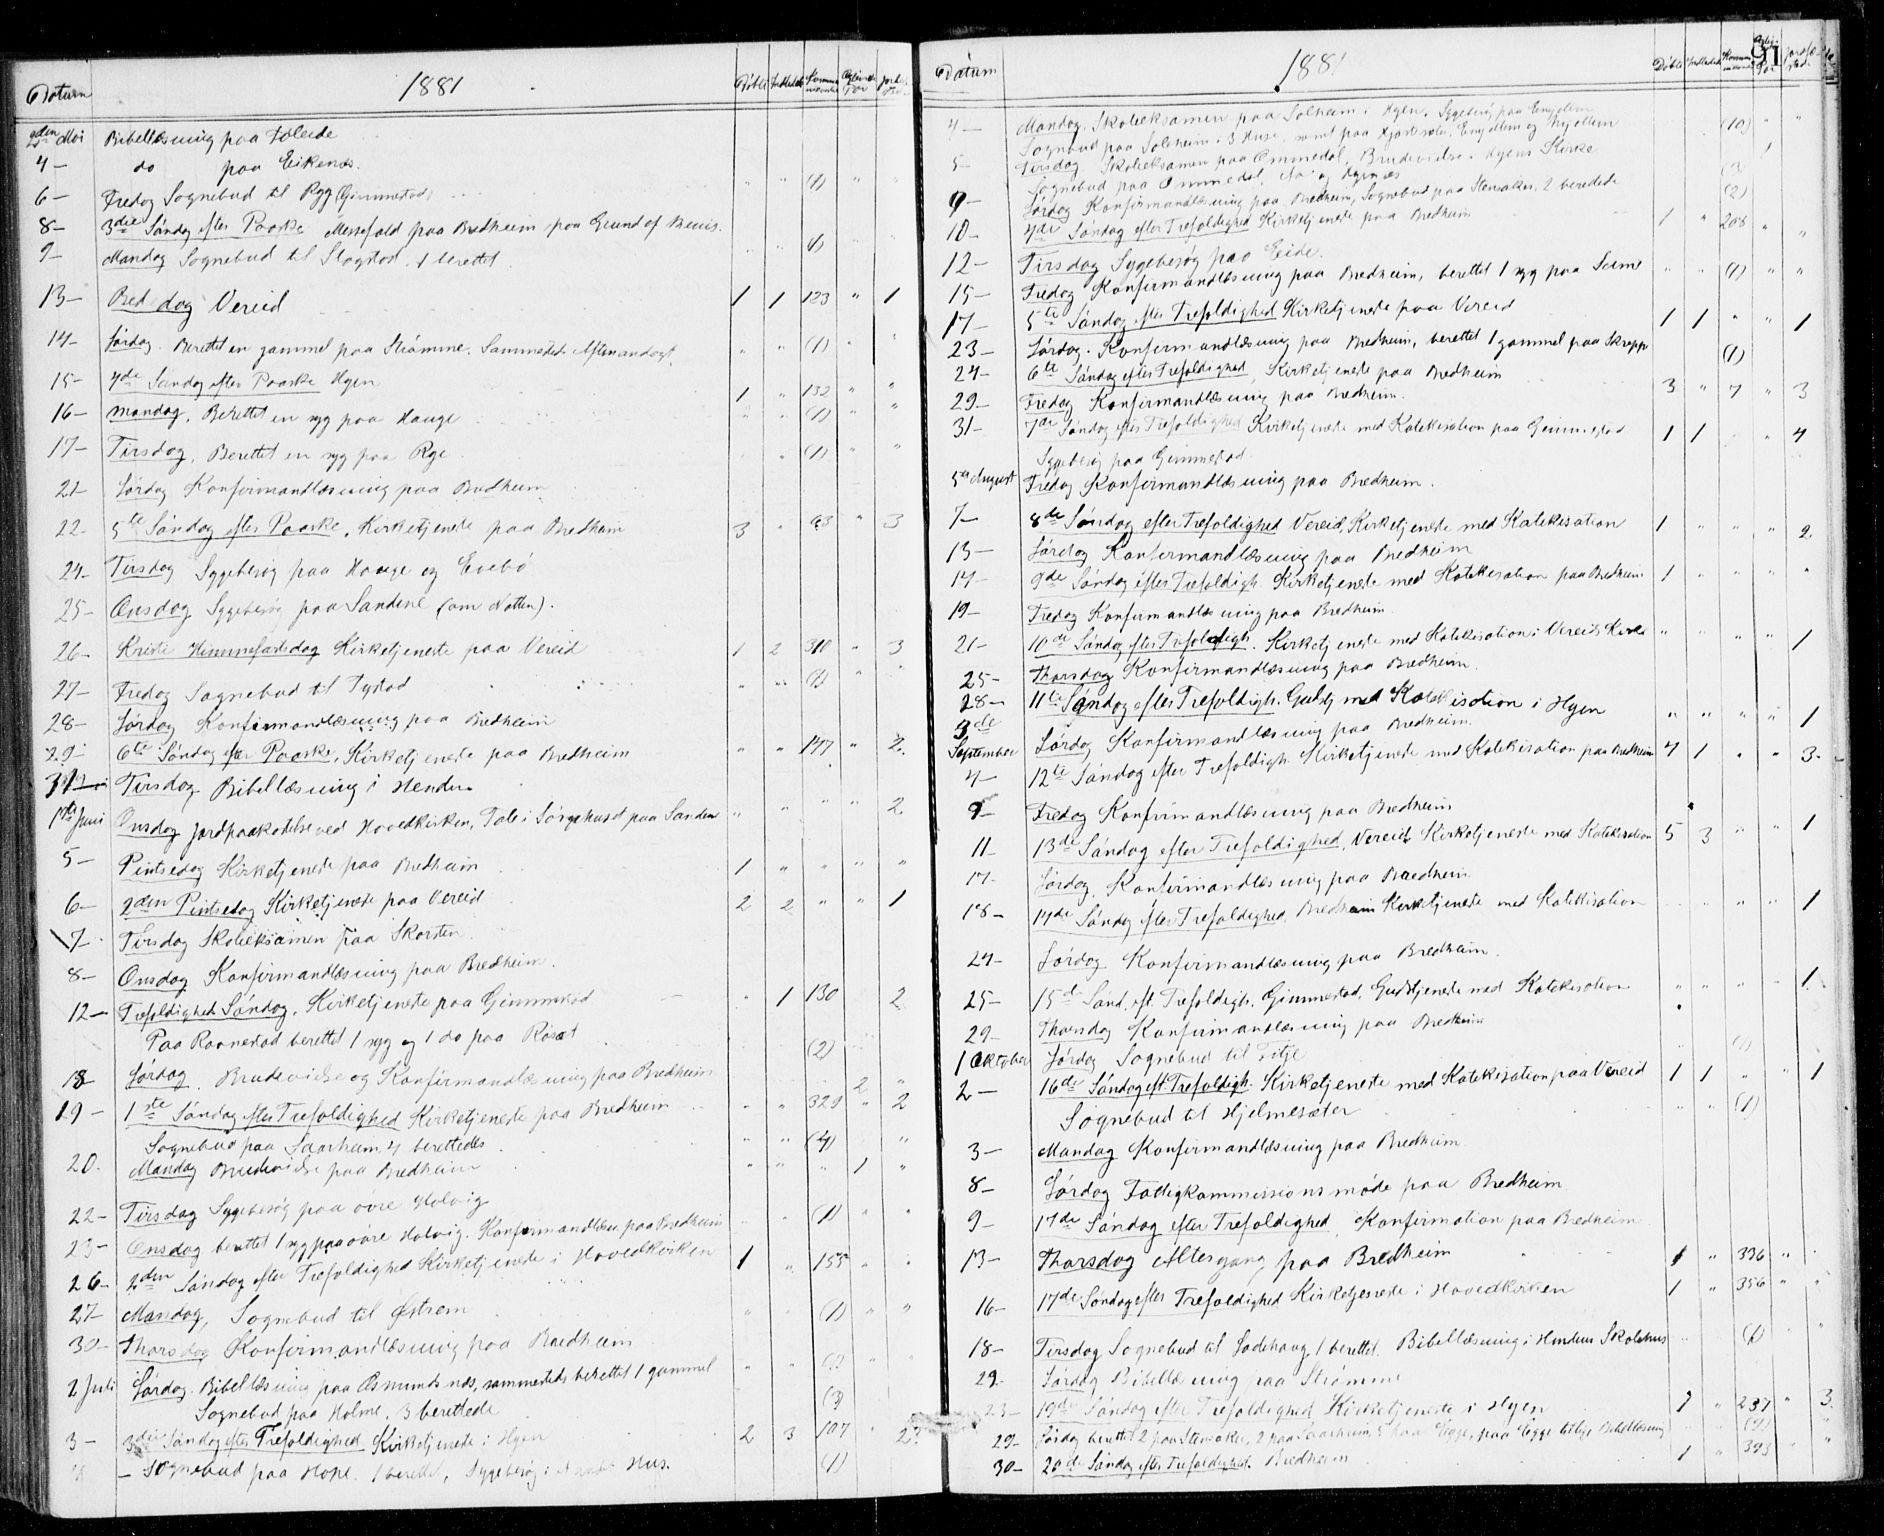 Datum 1881 Døbte Indledede Kommunicerende Ægtevi. Par Jordf.
2den Mai Bibellæsning paa Foleide
4 — do paa Eikenæs.
6 — Fredag Sognebud til Ryg (Gimmestad) " " (1) " "
8 — 3die Søndag efter Paaske Messefald paa Bredheim paa Grund af Meniis.
9 — Mandag Sognebud til Slagstad. 1 berettet. " " (1)
13 — Bed dag Vereid 1 1 123 " 1
14 — Lørdag. Berettet en gammel paa Strømme. Sammesteds Aftenandagt. " " (1) " "
15 — 4de Søndag efter Paaske Hyen 1 " 132 " "
16 — Mandag. Berettet en syg paa Hauge " " (1) " "
17 — Tirsdag. Berettet en syg paa Ryg. " (1) "
21 Lørdag Konfirmandlæsning paa Bredheim
22. 5te Søndag efter Paaske. Kirketjeneste paa Bredheim 3 " 93 " 3
24 — Tirsdag Sygebesøg paa Hauge og Evebø
25 — Onsdag Sygebesøg paa Sandene (om Natten).
26 — Kristi Himmelfartsdag Kirketjeneste paa Vereid 1 2 310 " 3
27 — Fredag Sognebud til Tystad " " (1) "
28 — Lørdag Konfirmandlæsning paa Bredheim
29 — 6te Søndag efter Paaske. Kirketjeneste paa Bredheim " " 147 " 2.
31 — Tirsdag Bibellæsning i Henden
1ste Juni Onsdag Jordpaakastelse ved Hovedkirken, Tale i Sørgehuset paa Sanden " " " " 2
5 — Pintsedag Kirketjeneste paa Bredheim 1 " " " "
6 — 2den Pintsedag Kirketjeneste paa Vereid 2 2 " " 1
7 — Tirsdag Skoleeksamen paa Skorsten.
8 — Onsdag Konfirmandlæsning paa Bredheim.
12 — Trefoldighed Søndag. Kirketjeneste paa Gimmestad " 1 130 2
Paa Raanestad berettet 1 syg og 1 do paa Roset (2)
18 Lørdag. Brudevielse og Konfirmandlæsning paa Bredheim 2 "
19 — 1ste Søndag efter Trefoldighed Kirketjeneste paa Bredheim " " 329 " 2
Sognebud paa Saarheim 4 berettedes " " (4) "
20. Mandag Brudevielse paa Bredheim " " " 1 "
22 — Tirsdag Sygebesøg paa øvre Holvig
23 — Onsdag berettet 1 syg paa øvre Holvig. Konfirmandlæsn paa Bredheim " " (1) " "
26 — 2den Søndag efter Trefoldighed Kirketjeneste i Hovedkirken 1 " 155 " "
27 — Mandag, Sognebud til Østrem " " (1) " "
30 — Thorsdag Konfirmandlæsning paa Bredheim
2 Juli Lørdag. Bibellæsning paa Osmundsnæs, sammesteds berettet 1 gammel " "
Sognebud paa Holme. 3 berettede (3)
3 — 3die Søndag efter Trefoldighed Kirketjeneste i Hyen 2 3 107 " 2
— Sognebud paa Hope. 1 berettet, Sygebesøg i et andet Hus. (1)
Datum 1881 91 Døbte Indledede Kommunicerende Par Jordfæstede
4 — Mandag. Skoleeksamen paa Solheim i Hyen. Sygebesøg paa
Sognebud paa Solheim i 3 Huse, samt paa (10) " "
5 — Tirsdag Skoleeksamen paa Ommedal. Brudevielse i Hyens Kirke
Sognebud paa Ommedal, (3)
9 — Lørdag Konfirmandlæsning paa Bredheim, Sognebud paa Stensaker, 2 berettede (2)
10 — 4de Søndag efter Trefoldighed Kirketjeneste paa Bredheim 1 " 208 " "
12 — Tirsdag Sygebesøg paa Eide.
15 — Fredag Konfirmandlæsning paa Bredheim, berettet 1 syg paa Seime " " (1) " "
17 — 5te Søndag efter Trefoldighed Kirketjeneste paa Vereid 1 1 " " 1
23 — Lørdag. Konfirmandlæsning paa Bredheim, berettet 1 gammel paa Skrepp (1)
24 — 6te Søndag efter Trefoldighed. Kirketjeneste paa Bredheim 3 " 7 " 3
29 — Fredag Konfirmandlæsning paa Bredheim.
31 — 7de Søndag efter Trefoldighed Kirketjeneste med Katekisation paa Gimmestad 1 1 " 4
Sygebesøg paa Gimmestad
5te August Fredag Konfirmandlæsning paa Bredheim.
7 — 8de Søndag efter Trefoldighed Vereid, Kirketjeneste med Katekisation 1 " " " 2
13 — Lørdag Konfirmandlæsning paa Bredheim
14 — 9de Søndag efter Trefoldigh. Kirketjeneste med Katekisation paa Bredheim 1 " " " "
19 — Fredag Konfirmandlæsning paa Bredheim.
21 — 10de Søndag efter Trefoldigh. Kirketjeneste med Katekisation i Vereids Kirke " " " " 1
25 — Thorsdag Konfirmandlæsning paa Bredheim.
28 — 11te Søndag efter Trefoldigh. Gudstj med Katekisation i Hyen " " " " 1
3de September Lørdag Konfirmandlæsning paa Bredheim.
4 — 12te Søndag efter Trefoldigh. Kirketjeneste med Katekisation paa Bredheim 4 1 " " 3
9 — Fredag Konfirmandlæsning paa Bredheim
11 — 13de Søndag efter Trefoldighed, Vereid, Kirketjeneste med Katekisation 5 3 " " 1
17 — Lørdag Konfirmandlæsning paa Bredheim
18 — 14de Søndag efter Trefoldighed, Bredheim Kirketjeneste med Katekisation 1
24 — Lørdag Konfirmandlæsning paa Bredheim.
25 — 15de Sønd. eft. Trefoldigh. Gimmestad. Gudstjeneste med Katekisation " " " " 1
29. Thorsdag Konfirmandlæsning paa Bredheim
1 Oktober Lørdag Sognebud til Fitje (1)
2 — 16de Søndag eft. Trefoldigh. Kirketjeneste med Katekisation paa Vereid 1 1 " " 1
Sognebud til Hjelmesæter " " (1)
3 — Mandag Konfirmandlæsning paa Bredheim
8 — Lørdag Fattigkommissionsmøde paa Bredheim
9 — 17de Søndag efter Trefoldighed. Konfirmation paa Bredheim
13 — Thorsdag Altergang paa Bredheim 1 " 336 "
16 — 17de Søndag efter Trefoldighed Kirketjeneste i Hovedkirken 1 " 356 " "
18 — Tirsdag Sognebud til Ladehaug 1 berettet. Bibellæsning i Hindens Skolehus (1)
22 Lørdag Bibellæsning paa Strømme
23 — 19de Søndag efter Trefoldighed Kirketjeneste i Hyen 1 " 237 " 3.
29 — Lørdag berettet 2 paa Stensaker, 2 paa Saarheim, 5 paa Egge, paa Egge tillige Bibellæsning (9)
30 — 20de Søndag efter Trefoldighed. Bredheim 1 " 393 " "